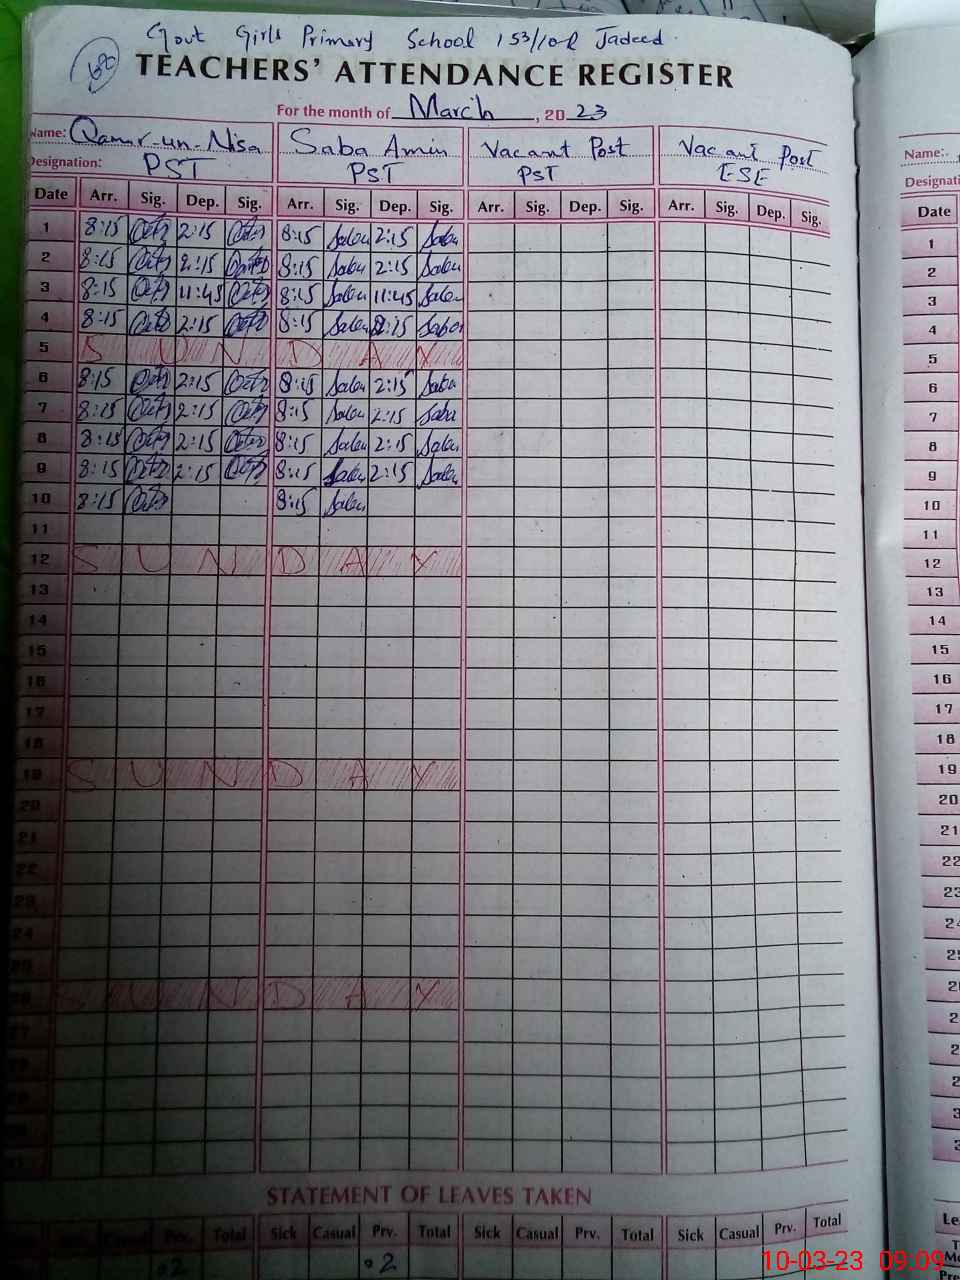 Govt Girls Primary School 153/10R Jadeed.
TEACHERS' ATTENDANCE REGISTER
For the month of March, 2023
Name: Qamar-un-Nisa Saba Amin Vacant Post Vacant Post
Designation: PST PST PST ESE
Date Arr. Sig. Dep. Sig. Arr. Sig. Dep. Sig. Arr. Sig. Dep. Sig. Arr. Sig. Dep. Sig.
1 8:15 2:15 8:15 Saba 2:15 Saba
2 8:15 2:15 8:15 Saba 2:15 Saba
3 8:15 11:45 8:15 Saba 11:45 Saba
4 8:15 2:15 8:15 Saba 2:15 Saba
5 SUNDAY
6 8:15 2:15 8:15 Saba 2:15 Saba
7 8:15 2:15 8:15 Saba 2:15 Saba
8 8:15 2:15 8:15 Saba 2:15 Saba
9 8:15 2:15 8:15 Saba 2:15 Saba
10 8:15 8:15 Saba
11
12 SUNDAY
13
14
15
16
17
18
19 SUNDAY
20
21
22
23
24
25
26 SUNDAY
27
STATEMENT OF LEAVES TAKEN
Sick Casual Prv. Total Sick Casual Prv. Total Sick Casual Prv. Total Sick Casual Prv. Total
.2 .2
Name:
Date
1
2
3
4
5
6
7
8
9
10
11
12
13
14
15
16
17
18
19
20
21
22
23
10-03-23 09:09